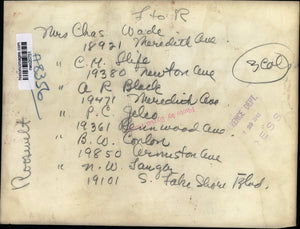 L to R
Mrs Chas Wade
18921 Meredith Ave.
" C. M. Slife
19380 Newton Ave
" A R Black
19471 Meredith Ave
" P. C.
19361 Kenwood Ave.
" B. W. Conlon
19850 Ormiston Ave
" N. W. Sanger
19101 S. Lake Shore Blvd.
3 col
Roosevelt
DEPT.